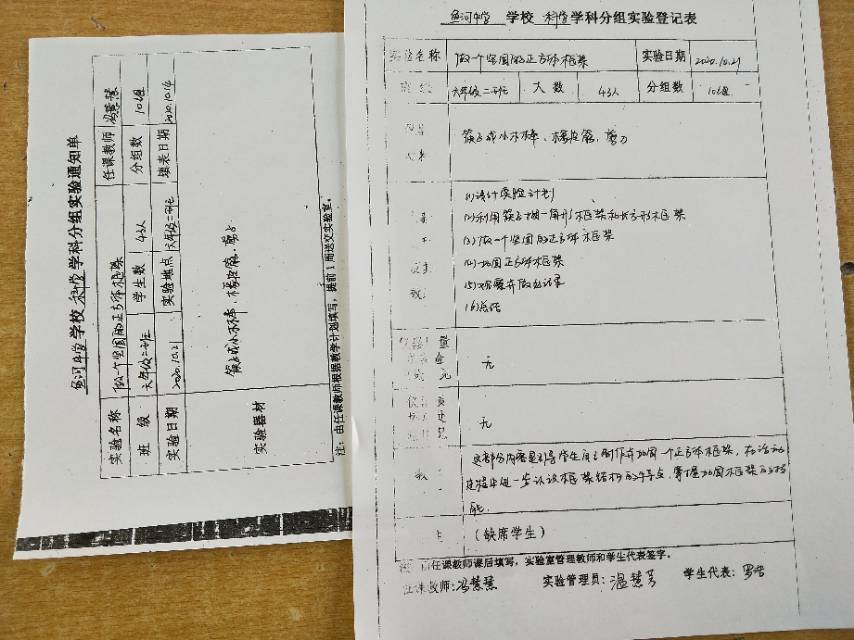 鱼河中学 学校 科学 学科分组实验通知单
实验名称 做一个坚固的正方体框架 任课教师 冯慧慧
班 级 六年级二班 学生数 43人 分组数 10组
实验日期 2020.10.21 实验地点 六年级二班 填表日期 2020.10.14
实验器材 筷子或小木棒、橡皮筋、剪刀
注：由任课教师根据教学计划填写，提前1周送交实验室。
鱼河中学 学校 科学 学科分组实验登记表
实验名称 做一个坚固的正方体框架 实验日期 2020.10.21
班 级 六年级二班 人 数 43人 分组数 10组
筷子或小木棒、橡皮筋、剪刀
(1)设计实验计划
(2)利用筷子做三角形框架和长方形框架
(3)做一个坚固的正方体框架
(4)加固正方体框架
(5)观察并做出记录
(6)总结
无
无
这部分内容是引导学生自主制作并加固一个正方体框架，在活动
过程中进一步认识框架结构的特点，掌握加固框架的技
能。
（缺席学生）
任课教师课后填写，实验室管理教师和学生代表签字。
任课教师：冯慧慧 实验管理员：温慧芳 学生代表：罗浩